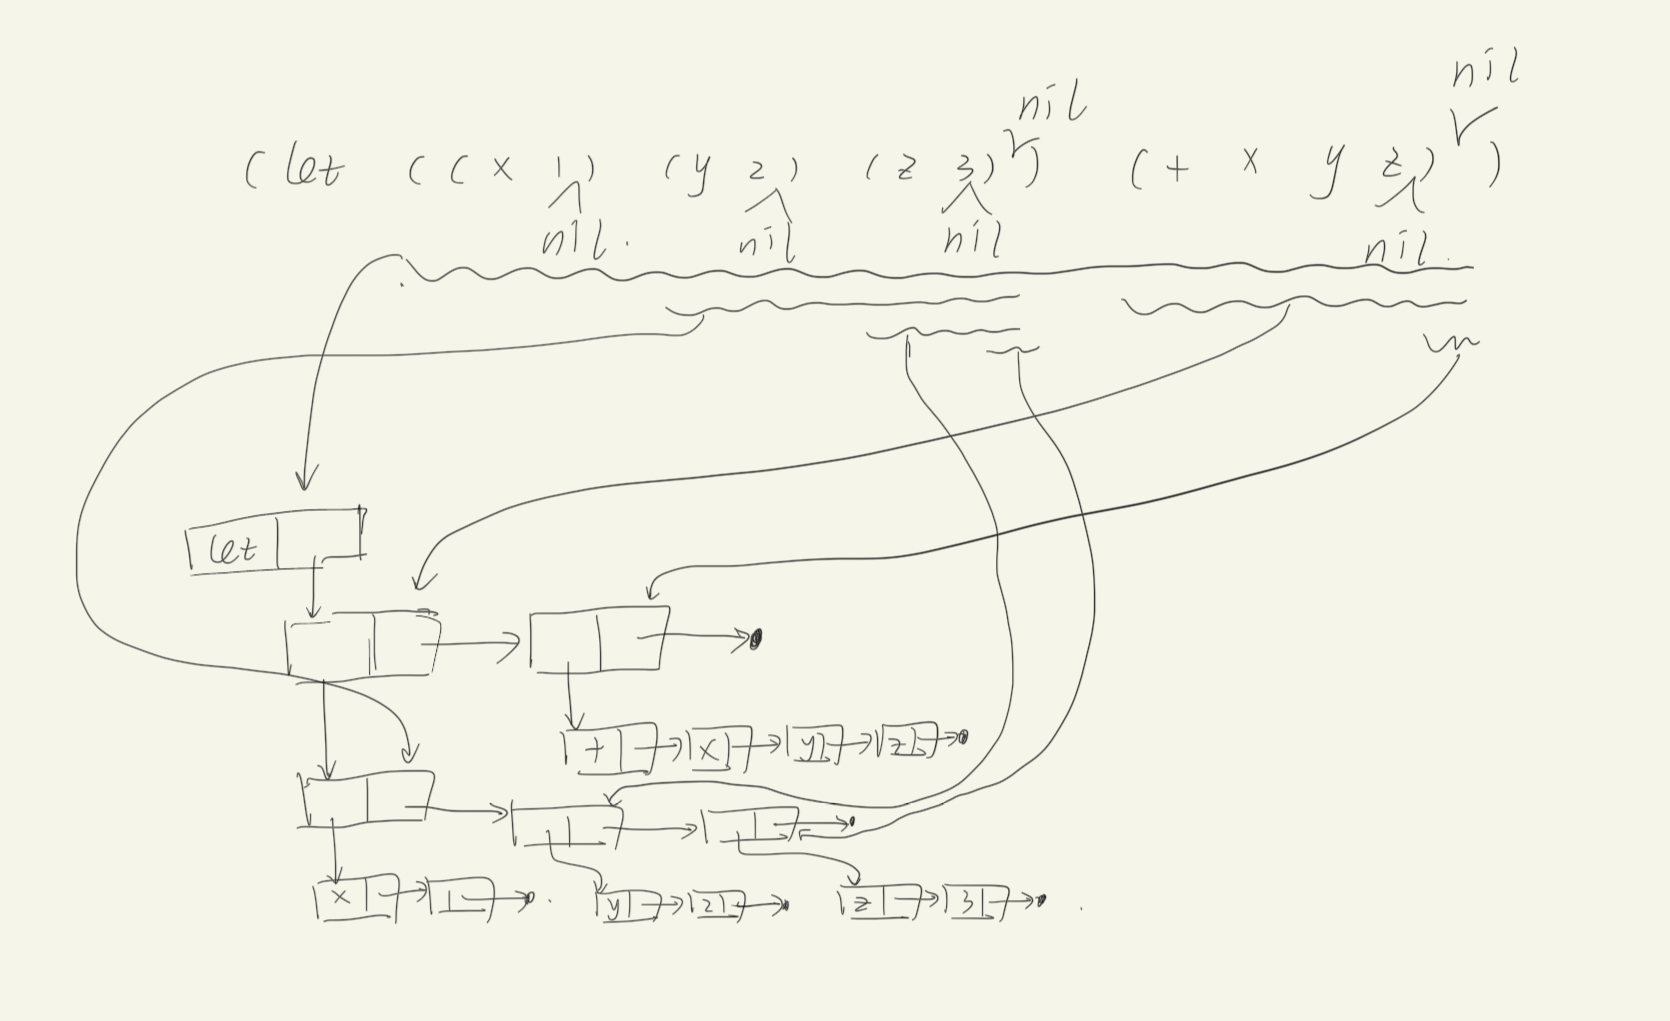 nil
nil
(let ((x 1) (y 2) (z 3)) (+ x y z))
nil. nil nil nil.
let
+ x y z
x 1 y 2 z 3